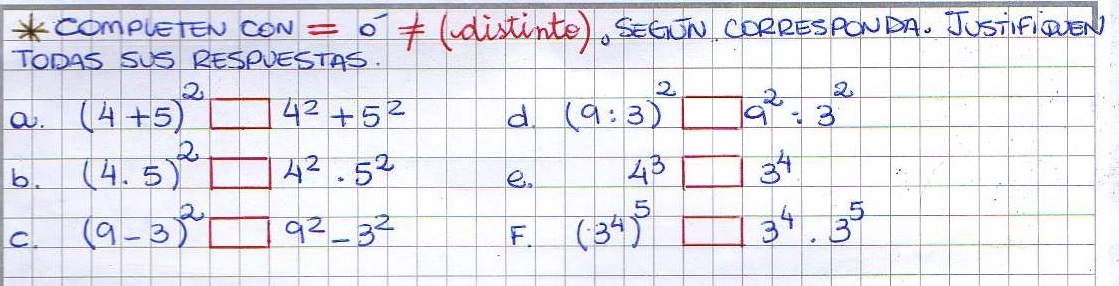 * COMPLETEN CON = ó ≠ (distinto), SEGÚN CORRESPONDA. JUSTIFIQUEN
TODAS SUS RESPUESTAS.
a. (4+5)² □ 4² + 5² d. (9:3)² □ 9² : 3²
b. (4.5)² □ 4² . 5² e. 4³ □ 3⁴
c. (9-3)² □ 9² - 3² F. (3⁴)⁵ □ 3⁴ . 3⁵